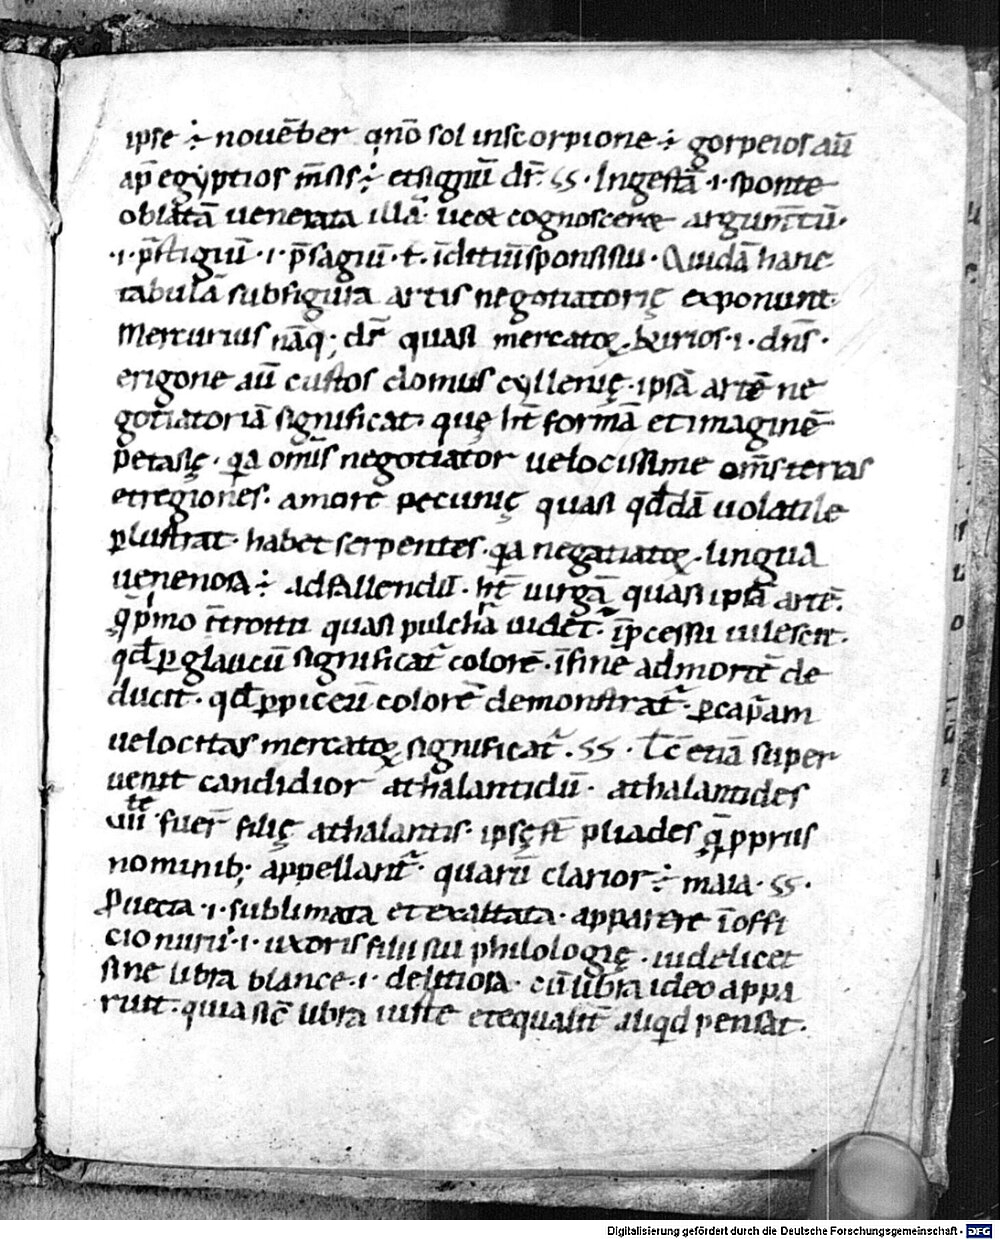 ipse ÷ nouēber qnō sol inscorpione ÷ gorpeios aū
ap̄ egẏptios m̄sis ÷ etsignū dr̄. SS. Ingestā .i. sponte
oblatā uenerata illā. uece cognoscere argum̄tū.
.i. p̄stigiū .i. p̄sagiū. ł. īditiū sponsisui. Quidā hanc
tabulā subfigura artis negotiatorię exponunt.
Mercurius nāq; dr̄ quasi mercatoꝝ. kyrios .i. dn̄s.
erigone aū custos domus cyllenię. ipsā artē ne
gotiatoriā significat. quę ht̄ formā et imaginē
petasię. qa om̄is negotiator uelocissime om̄s terras
et regiones. amore pecunię quasi qd̄dā uolatile
ꝑlustrat. habet serpentes. qa negatiatoꝝ. lingua
uenenosa ÷ ad fallendū. ht̄ uirgā quasi ipsā artē.
q̄ pimo īt̄roitu quasi pulchra uidet̄. īpcessu uilescit.
qd̄ ꝑ glaucū significat̄ colorē. īfine admortē de
ducit. qd̄ ꝑpiceū colorē demonstrat̄. ꝑcapam
uelocitas mercatoꝝ significat̄. SS. Tc̄ etiā super
uenit candidior athalantidū. athalantides
uii fuer̄ filię athalantis. ipsę st̄ pliades q̄ pprius
nominib; appellant̄. quarū clarior ÷ maia. SS.
Puecta .i. sublimata et exaltata. apparere ī offi
cio nurū .i. uxoris filii sui philologię. uidelicet
sine libra blance .i. delitiosa. cū libra ideo appa
ruit. quia sic̄ libra iuste et equalit̄ aliqd pensat.
Digitalisierung gefördert durch die Deutsche Forschungsgemeinschaft - DFG